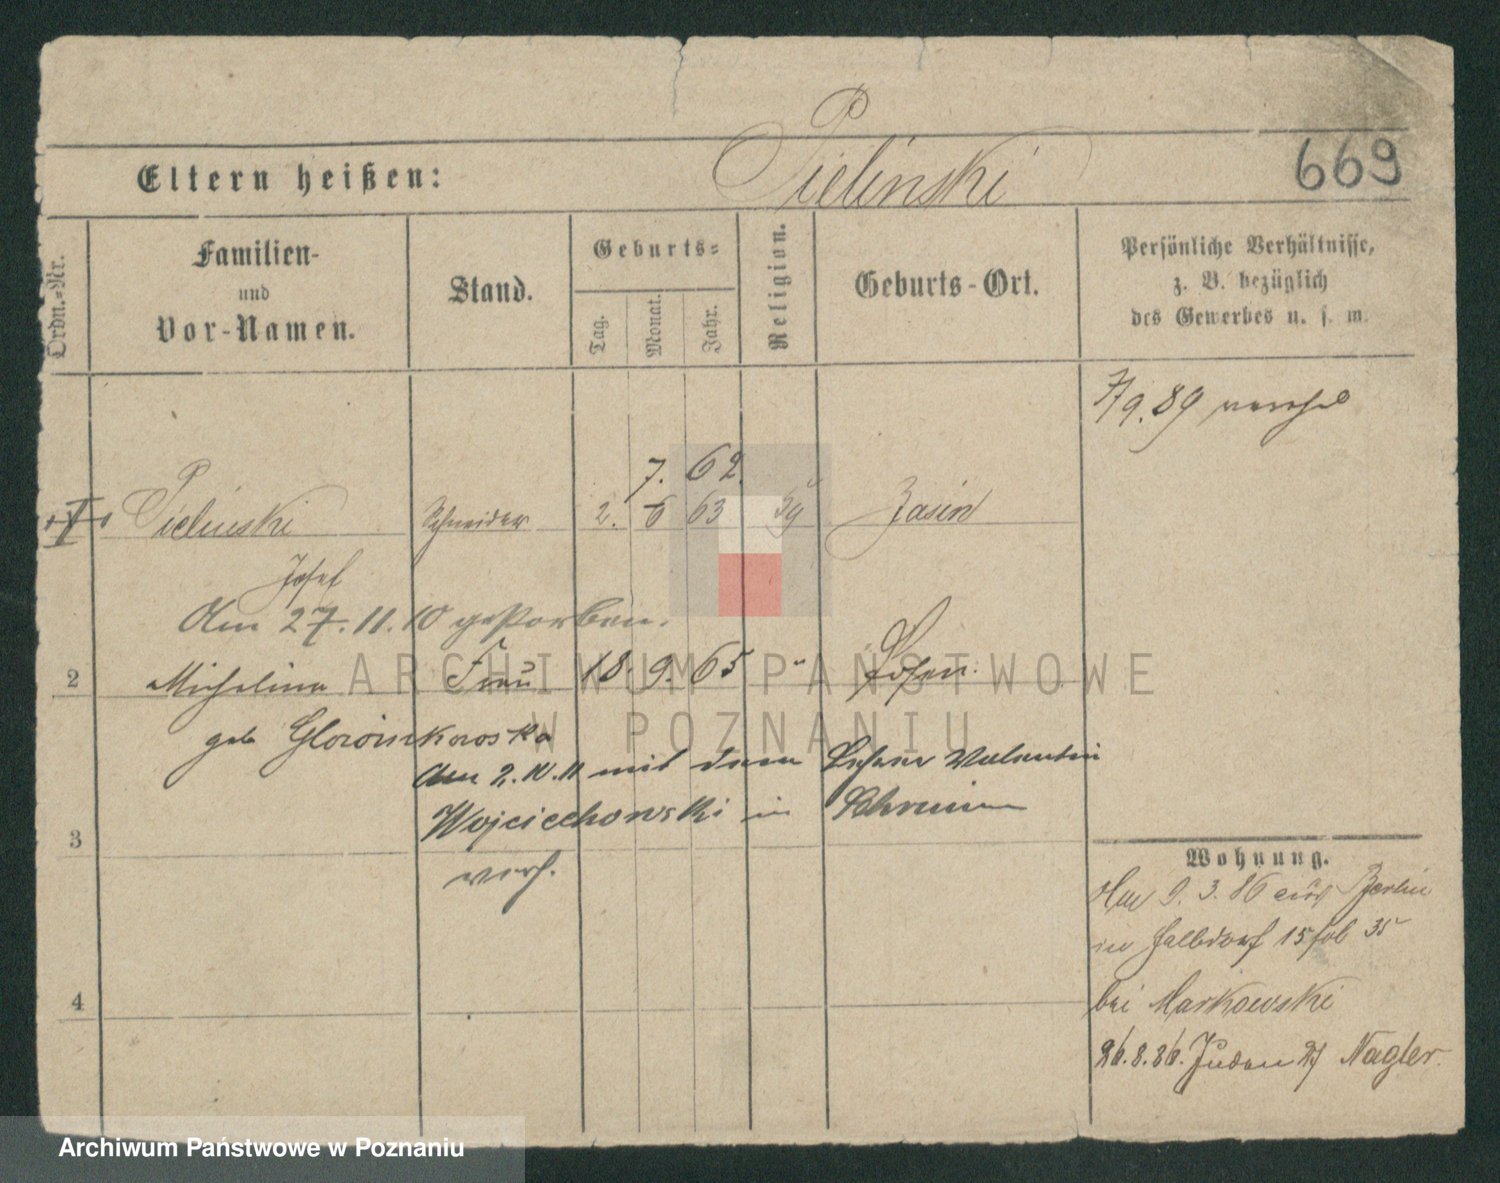 Pielinski
669
Eltern heißen:
Ordn.-Nr.
Familien-
und
Vor-Namen.
Stand.
Geburts-
Tag.
Monat.
Jahr.
Religion.
Geburts-Ort.
Persönliche Verhältnisse,
z. B. bezüglich
des Gewerbes u. s. w.
7/9.89
7. 62.
Pielinski Schneider 2. 6 63
Josef
Am 27.11.10 gestorben.
2 Michalina Frau 18. 9. 65 " Posen.
geb Glowinkowska
Am 2.10.11 mit dem Valentin
Wojciechowski in Schrimm
verh.
3
4
Wohnung.
Am 9. 3. 86 aus Berlin
in Halbdorf 15 fol 35
bei Markowski
26.8.86. Juden 27 Nagler.
ARCHIWUM PAŃSTWOWE
W POZNANIU
Archiwum Państwowe w Poznaniu